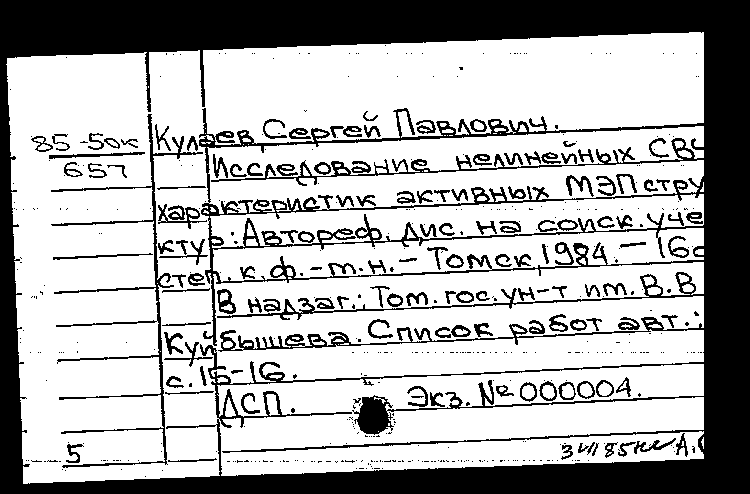 85-50к Кулаев, Сергей Павлович.
657 Исследование нелинейных СВЧ
характеристик активных МЭП стру
ктур: Автореф. дис. на соиск. уче
степ. к.ф.-т.н. - Томск, 1984. - 16с
В надзаг.: Том. гос. ун-т им. В.В
Куйбышева. Список работ авт.:
с. 15-16.
ДСП. Экз. № 000004.
5